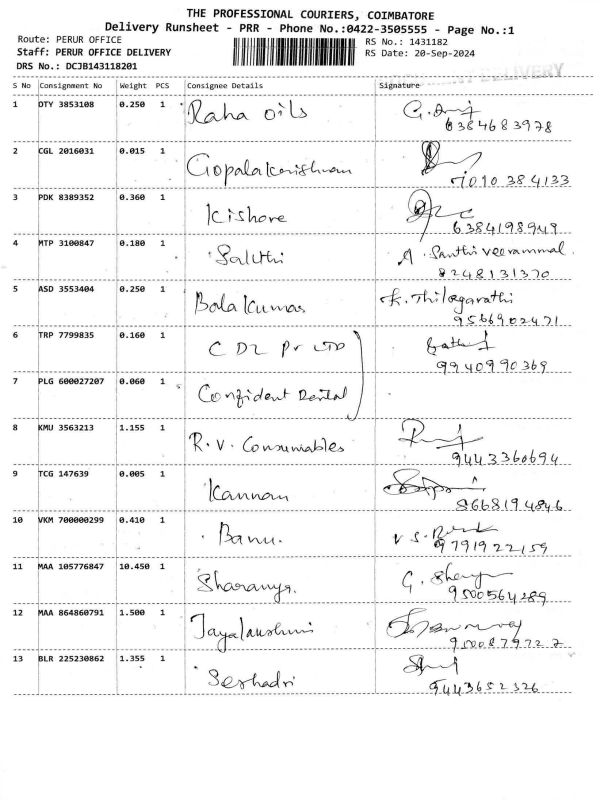 THE PROFESSIONAL COURIERS, COIMBATORE
Delivery Runsheet - PRR - Phone No.:0422-3505555 - Page No.:1
Route: PERUR OFFICE RS No.: 1431182
Staff: PERUR OFFICE DELIVERY RS Date: 20-Sep-2024
DRS No.: DCJB143118201 DELIVERY
S No Consignment No Weight PCS Consignee Details Signature
1 DTY 3853108 0.250 1 Raha oils
6384683978
2 CGL 2016031 0.015 1 Gopalakrishnan
7010384133
3 PDK 8389352 0.360 1 Kishore
6384198949
4 MTP 3100847 0.180 1 A. Santhi veerammal
8248131370
5 ASD 3553404 0.250 1 Balakumar K. Thilagarathi
9566902471
6 TRP 7799835 0.160 1 CDL Pv LTD
9940990369
7 PLG 600027207 0.060 1 Confident Dental
8 KMU 3563213 1.155 1 R.V. Consumables
9443360694
9 TCG 147639 0.005 1 Kannan
8668194846
10 VKM 700000299 0.410 1 Banu.
9791922159
11 MAA 105776847 10.450 1 Sharanya.
9500564289
12 MAA 864860791 1.500 1 Jayalaxshmi
9500879727
13 BLR 225230862 1.355 1 Seshadri
9443652326